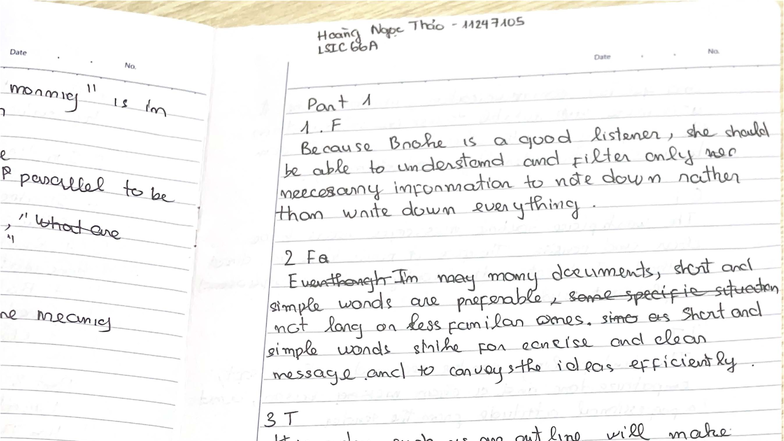 Hoàng Ngọc Thảo - 11247105
LSIC66A
Date
No.
Date
No.
morning" is in
parallel to be
, "What are
"
ne meaning
Part 1
1. F
Because Brooke is a good listener, she should
be able to understand and filter only nec
neecesarry information to note down rather
than write down everything.
2 Fa
Eventhough In many documents, short and
simple words are preferable, some specific situation
not long or less familar ones. since as Short and
simple words strike for concise and clear
message and to conveysthe ideas efficiently.
3 T
an outline will make